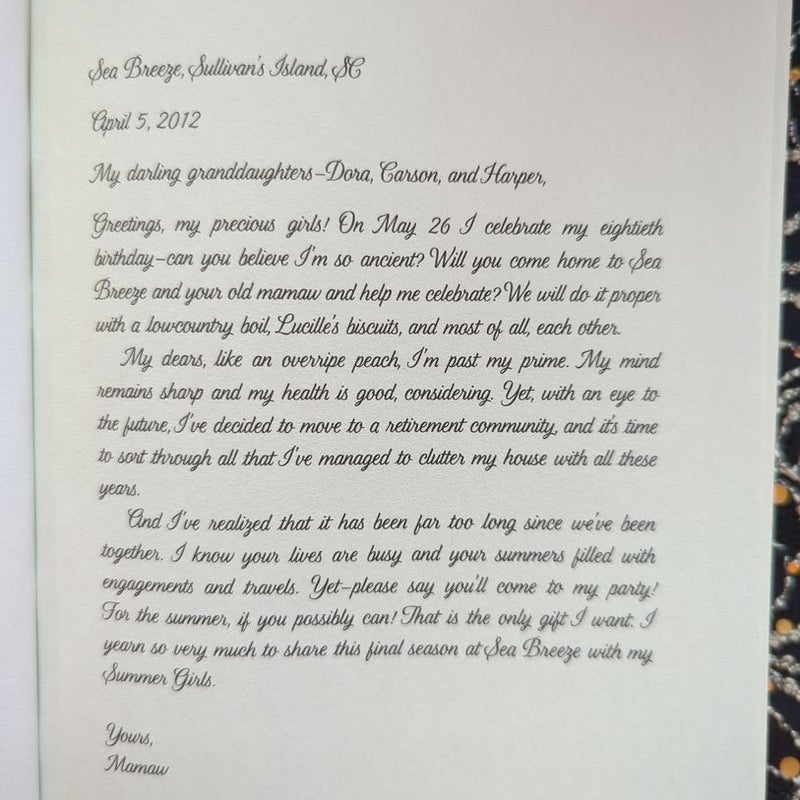 Sea Breeze, Sullivan's Island, SC
April 5, 2012
My darling granddaughters–Dora, Carson, and Harper,
Greetings, my precious girls! On May 26 I celebrate my eightieth
birthday–can you believe I'm so ancient? Will you come home to Sea
Breeze and your old mamaw and help me celebrate? We will do it proper
with a lowcountry boil, Lucille's biscuits, and most of all, each other.
My dears, like an overripe peach, I'm past my prime. My mind
remains sharp and my health is good, considering. Yet, with an eye to
the future, I've decided to move to a retirement community, and it's time
to sort through all that I've managed to clutter my house with all these
years.
And I've realized that it has been far too long since we've been
together. I know your lives are busy and your summers filled with
engagements and travels. Yet–please say you'll come to my party!
For the summer, if you possibly can! That is the only gift I want. I
yearn so very much to share this final season at Sea Breeze with my
Summer Girls.
Yours,
Mamaw